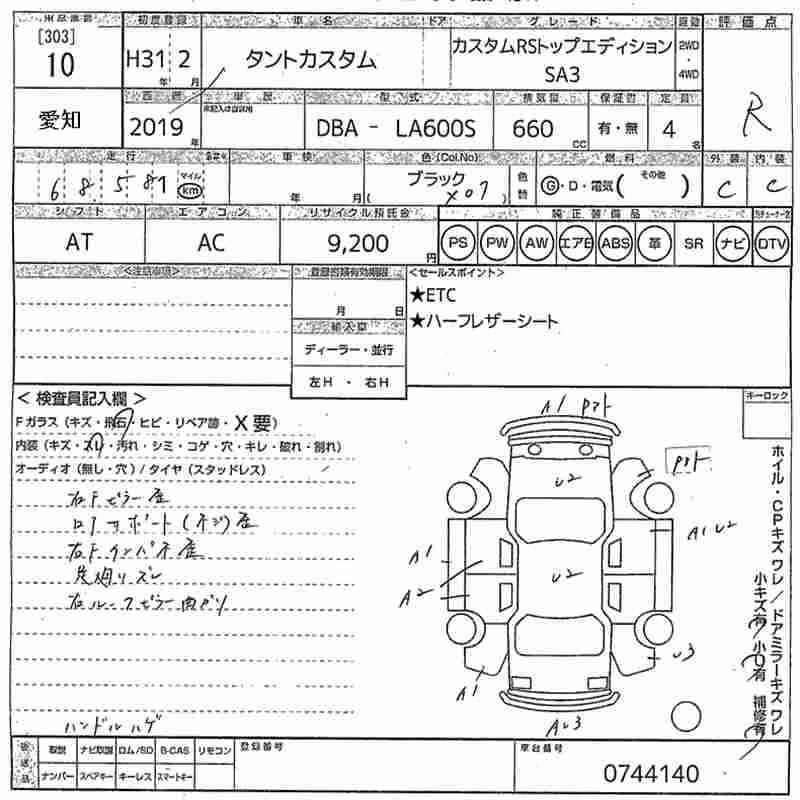 出品番号 初度登録 車名 ドア グレード 駆動 評価点
[303]
10
H31年 2月 タントカスタム カスタムRSトップエディション
SA3
2WD
・
4WD
R
愛知
西暦 車歴 型式 排気量 保証書 定員
未記入は自家用
2019年 DBA - LA600S 660cc 有・無 4名
走行 車検 色(Col.No) 燃料 外装 内装
68587 マイル km 年 月 ブラック
( X07 )
色替 G・D・電気( その他 ) C C
シフト エアコン リサイクル預託金 純正装備品
AT AC 9,200円 PS PW AW エアB ABS 革 SR ナビ DTV
<注意事項> 登録書類有効期限 <セールスポイント>
月 日
★ETC
★ハーフレザーシート
輸入車
ディーラー・並行
左H ・ 右H
< 検査員記入欄 > キーロック
Fガラス (キズ・飛石・ヒビ・リペア跡・X要)
内装 (キズ・スレ・汚れ・シミ・コゲ・穴・キレ・破れ・割れ)
オーディオ (無し・穴) / タイヤ (スタッドレス)
右Fピラー歪
右Fインパネ歪
右ルーフピラー凹
ハンドルハゲ
A1
U2
A1 U2
A1
U2
A2
U3
A1
AU3
ホイル・CPキズ ワレ / ドアミラーキズ ワレ
小キズ有 小U有 補修有
後送品 取説 ナビ取説 ロム/SD B-CAS リモコン 登録番号 車台番号
ナンバー スペアキー キーレス スマートキー
0744140